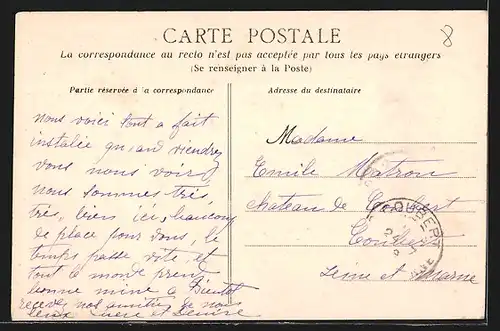 CARTE POSTALE
8
La correspondance au recto n'est pas acceptée par tous les pays étrangers
(Se renseigner à la Poste)
Partie réservée à la correspondance
Adresse du destinataire
nous voici tout a fait
installée quand viendrez
vous nous voir
nous sommes très
très bien ici, beaucoup
de place pour vous, le
temps passe vite et
tout le monde prend
bonne mine a Bientot
recevez nos amitiés de nous
deux et Denise
Madame
Emile Matron
chateau de Coubert
Coubert
Seine et Marne
COUBERT